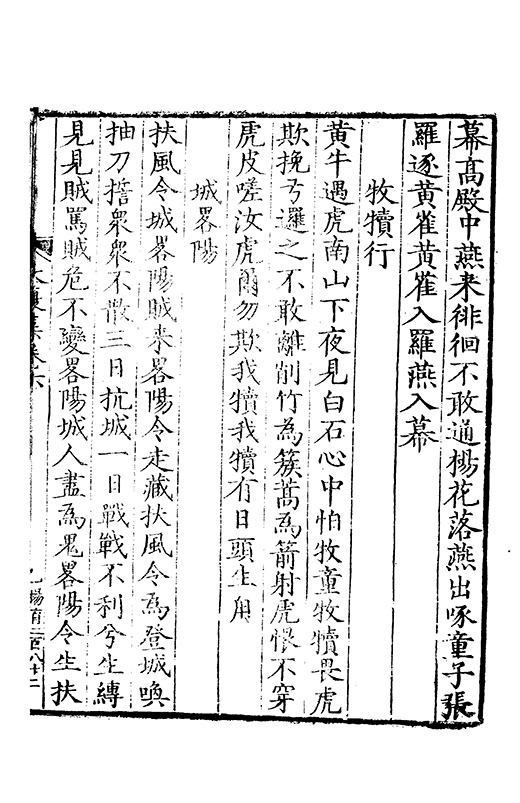 幕高殿中燕来徘徊不敢通楊花落燕出啄童子張
羅逐黄雀黄雀入羅燕入幕
牧犢行
黄牛遇虎南山下夜見白石心中怕牧童牧犢畏虎
欺挽弓邏之不敢離削竹為簇蒿為箭射虎恨不穿
虎皮嗟汝虎爾勿欺我犢我犢有日頭生角
城畧陽
扶風令城畧陽賊来畧陽令走藏扶風令為登城喚
抽刀誓衆衆不散三日抗城一日戰戰不利兮生縛
見見賊罵賊危不變畧陽城人盡為鬼畧陽令生扶
集卷六